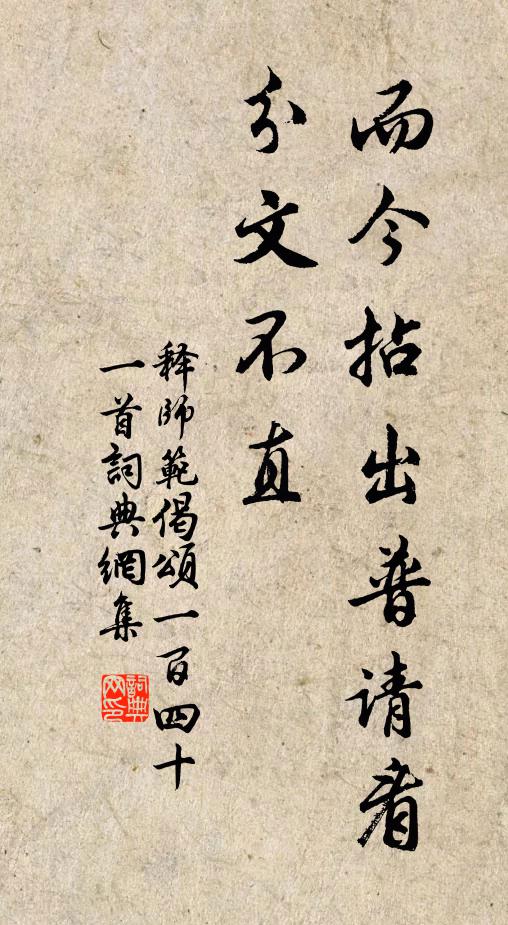 而今拈出普请看
分文不直
释師範偈頌一百四十
一首詞典網集
詞典
网印